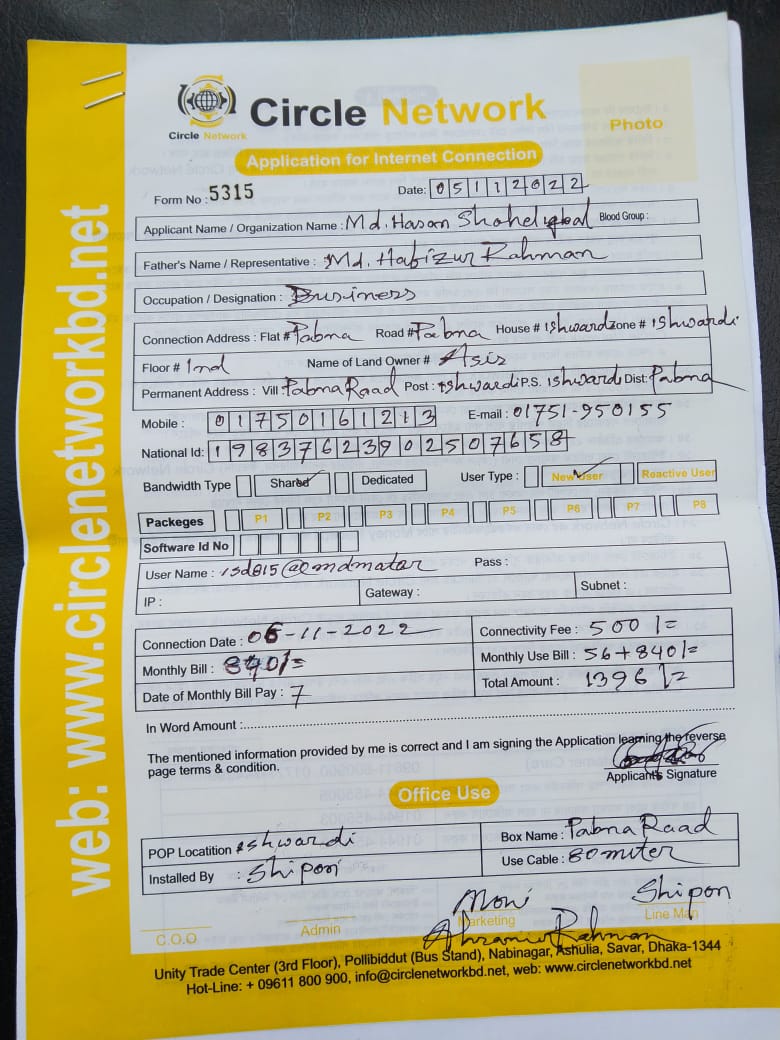 Circle Network
Circle Network
Photo
Application for Internet Connection
Form No : 5315
Date: 05112022
Applicant Name / Organization Name : Md. Hasan Shohel iqbal Blood Group :
Father's Name / Representative : Md. Hafizur Rahman
Occupation / Designation : Business
Connection Address : Flat # Pabna Road # Pabna House # Ishwardi Zone # Ishwardi
Floor # 2nd Name of Land Owner # Asis
Permanent Address : Vill Pabna Raad Post : Ishwardi P.S. Ishwardi Dist: Pabna
Mobile : 01750161213 E-mail : 01751-950155
National Id: 19837623902507658
Bandwidth Type Shared Dedicated User Type : New User Reactive User
Packeges P1 P2 P3 P4 P5 P6 P7 P8
Software Id No
User Name : isd815@mdmatar Pass :
IP : Gateway : Subnet :
Connection Date : 06-11-2022 Connectivity Fee : 500/=
Monthly Bill : 840/= Monthly Use Bill : 56+840/=
Date of Monthly Bill Pay : 7 Total Amount : 1396/=
In Word Amount :
The mentioned information provided by me is correct and I am signing the Application learning the reverse
page terms & condition.
Applicant's Signature
Office Use
POP Locatition : Ishwardi Box Name : Pabna Raad
Installed By : Shipon Use Cable : 80 miter
Moni Shipon
C.O.O Admin Marketing Line Man
Rahman
Unity Trade Center (3rd Floor), Pollibiddut (Bus Stand), Nabinagar, Ashulia, Savar, Dhaka-1344
Hot-Line: + 09611 800 900, info@circlenetworkbd.net, web: www.circlenetworkbd.net
web: www.circlenetworkbd.net